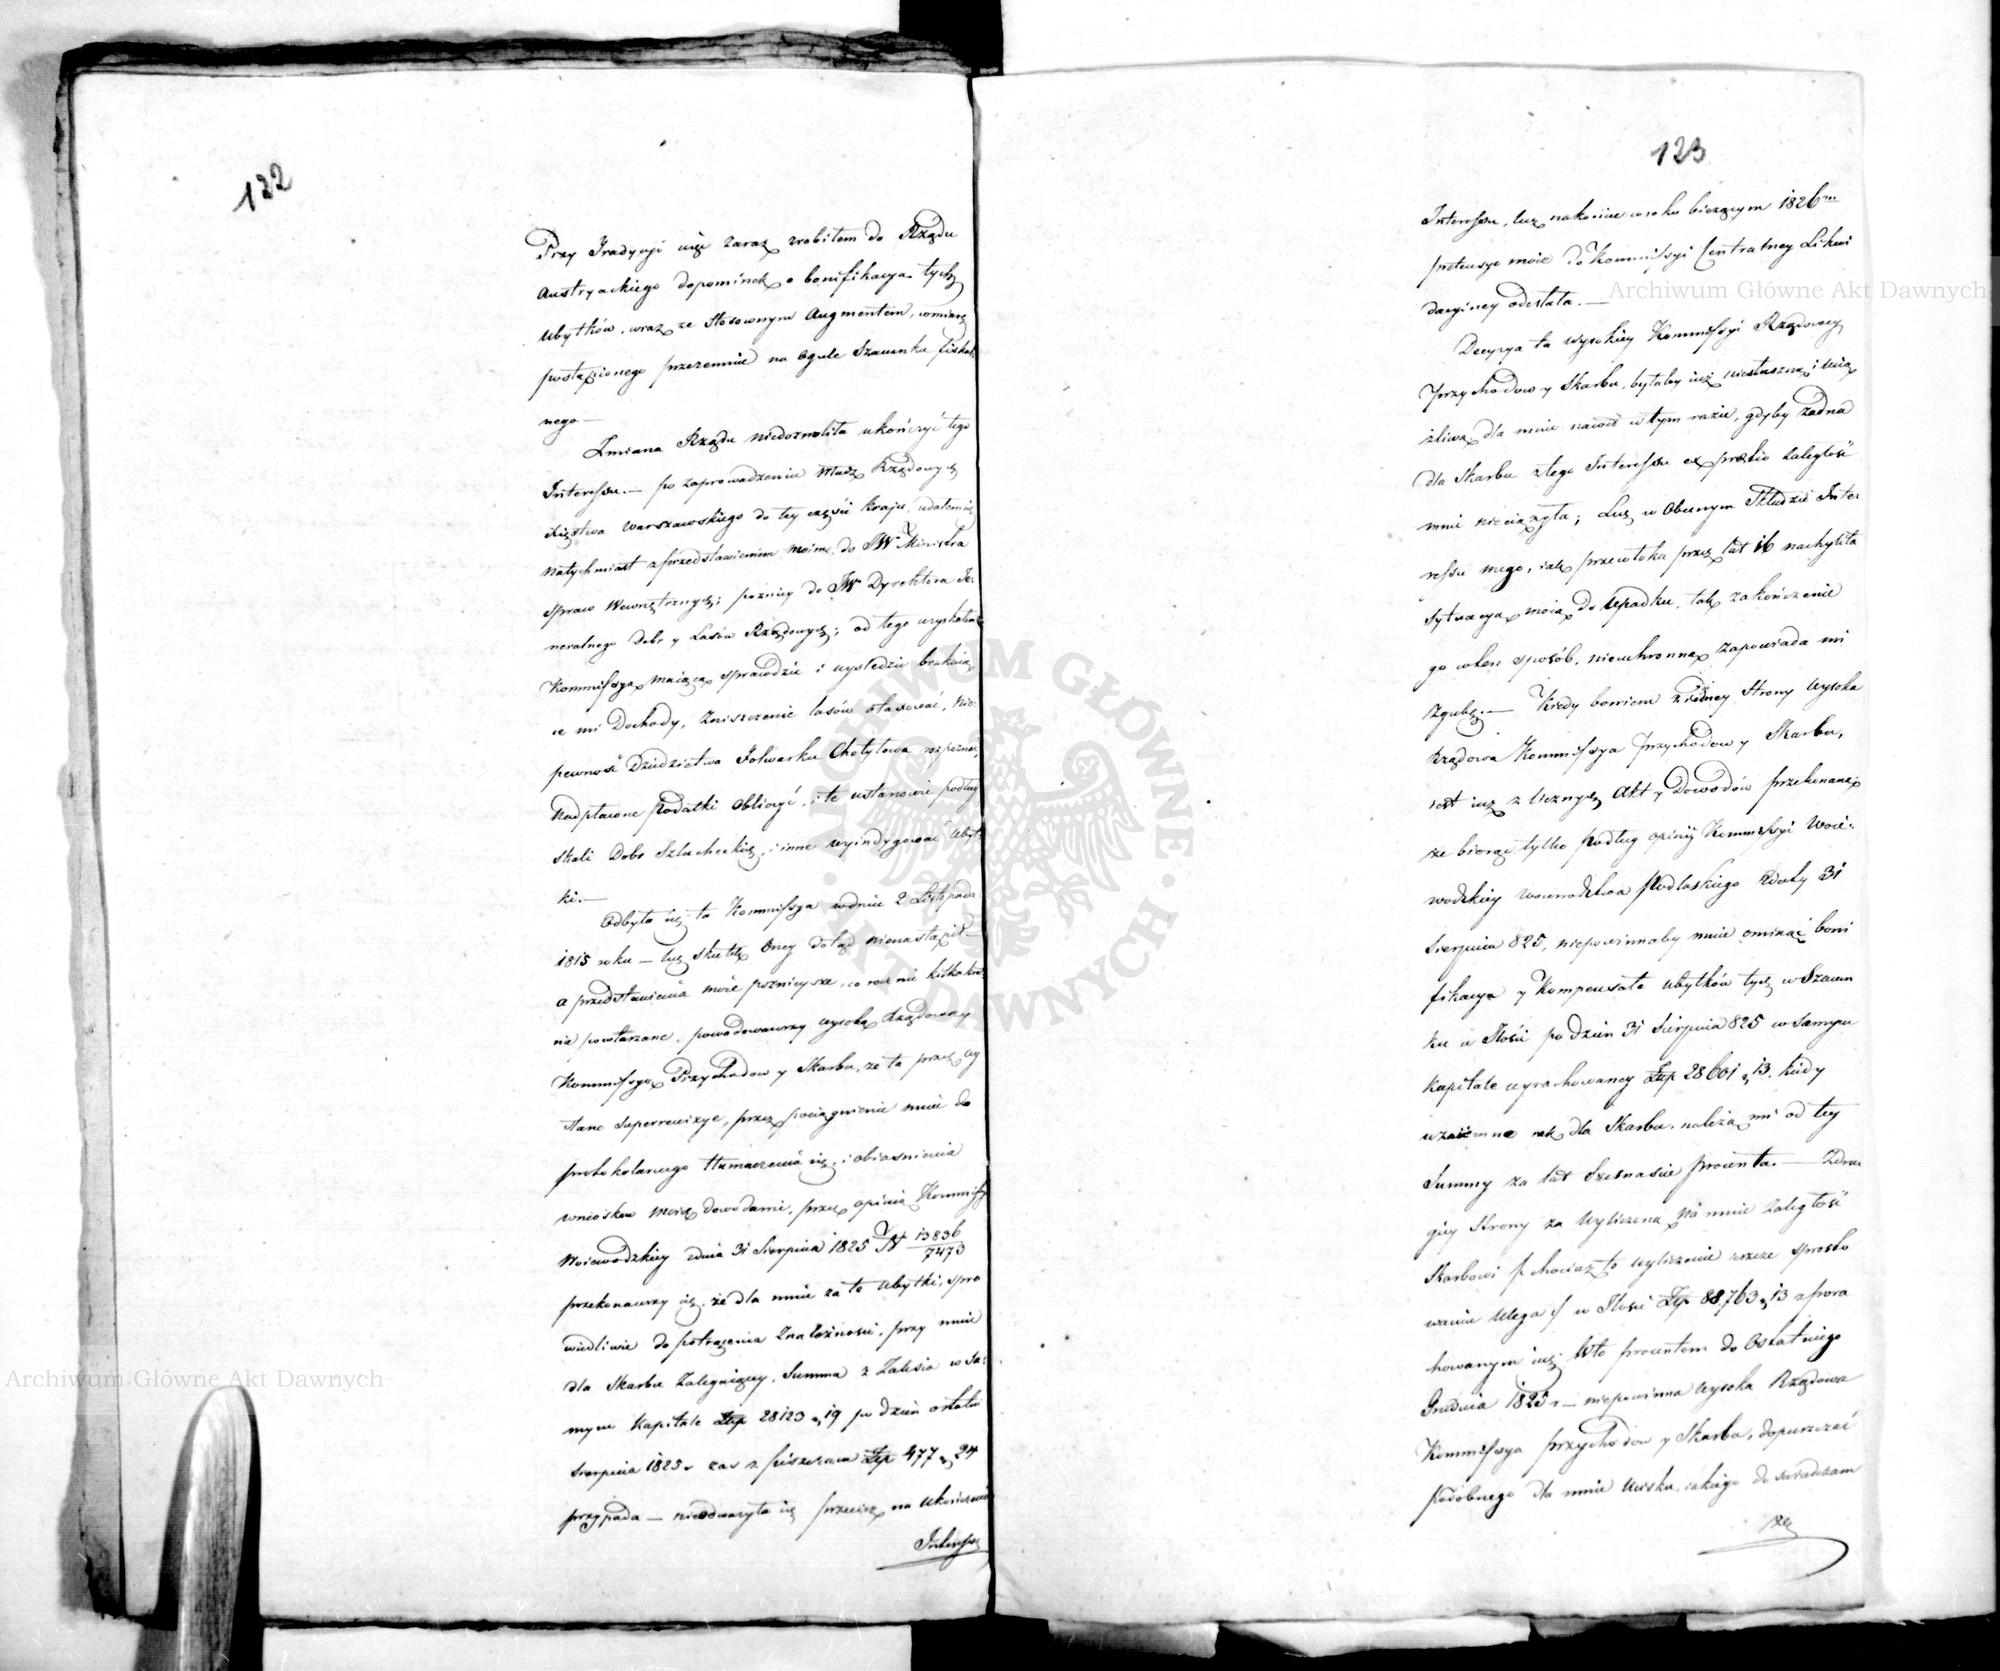 122
Przy Tradycyi więc zaraz zrobiłem do Rządu
Austryackiego dopominek o bonifikacyą tych
ubytków, wraz ze stosownym Augmentem, w miarę
postąpionego przezemnie na ogule Szacunku fiskal
nego —
Zmiana Rządu niedozwoliła ukończyć tego
Interessu. — po zaprowadzeniu Władz Rządowych
Xięstwa Warszawskiego do tey części kraju, udałem się
natychmiast z przedstawieniem moim, do JW Ministra
Spraw Wewnętrznych; pozniey do JW Dyrektora Je-
neralnego Dobr y Lasów Rządowych; od tego uzyskałem
Kommissyą maiącą sprawdzić i wysledzić brakuią
ce mi Dochody, Zniszczenie lasów otaxować, Nie-
pewność Dziedzictwa Folwarku Chotyłowa rozpoznać,
Nadpłacone Podatki obliczyć, i te ustanowić podług
Skali Dobr Szlacheckich, i inne wyindygować ubyt-
ki. —
Odbyła się ta Kommissya w dniu 2 Listopada
1815 roku — lecz skutek oney dotąd nienastąpił —
a przedstawienia moie poznieysze, co rocznie kilkakrot
nie powtarzane, powodowawszy wysoką Rządową
Kommissyą Przychodow y Skarbu, że ta przez wy
słane Superrewizye, przez pociągnienie mnie do
protokolarnego tłumaczenia się, i obiasnienia
wniosków moich dowodami, przez opinią Kommissyi
Woiewodzkiey z dnia 31 Sierpnia 1825 N 13836/7473
przekonawszy się, że dla mnie za te ubytki, spra
wiedliwie do potrącenia Znależności, przy mnie
dla Skarbu Zalegaiącey, Summa z Zalesia w Sa-
mym Kapitale Złp 28123 g 19 po dzień ostatni
Sierpnia 1825 r zas z Piszczaca Złp 477 g 24
przypada — nieodważyła się przecież na ukończenie
Interessu
123
Interessu, lecz nakoniec w roku bieżącym 1826m
pretensye moie do Kommissyi Centralney Likwi
dacyiney odesłała. —
Decyzya ta wysokiey Kommissyi Rządowey
Przychodow y Skarbu, byłaby iuż niesłuszną i uciąż
żliwą dla mnie nawet w tym razie, gdyby żadna
dla Skarbu z tego Interessu ex pretio zaległość
mnie nieciążyła; Lecz w obecnym Składzie Inte-
ressu mego, iak przewłoka przez lat 16 nachyliła
Sytuacyą moią do upadku, tak zakończenie
go w ten sposób, nieuchronną zapowiada mi
Zgubę. — Kiedy bowiem z iedney Strony wysoka
Rządowa Kommissya Przychodow y Skarbu,
iest iuż z licznych Akt y Dowodów przekonaną
że biorąc tylko podług opinii Kommissyi Woie-
wodzkiey Woiewodztwa Podlaskiego z daty 31
Sierpnia 825, niepowinnaby mnie ominąć boni
fikacya y kompensata ubytków tych w Szacun
ku w Ilości po dzień 31 Sierpnia 825 w samym
Kapitale wyrachowaney Złp 28601 g 13. kiedy
wzaiemne iak dla Skarbu, należą mi od tey
Summy za lat Szesnascie procenta. — Z dru
giey Strony za wyliczoną na mnie zaległość
Skarbowi /: chociaż to wyliczenie ieszcze sprosto
waniu ulega :/ w Ilości Złp 88763 g 13 z pora
chowanym iuż Wto procentem do ostatniego
Grudnia 1825 r — niepowinna wysoka Rządowa
Kommissya Przychodow y Skarbu, dopuszczać
podobnego dla mnie ucisku, iakiego doswiadczam